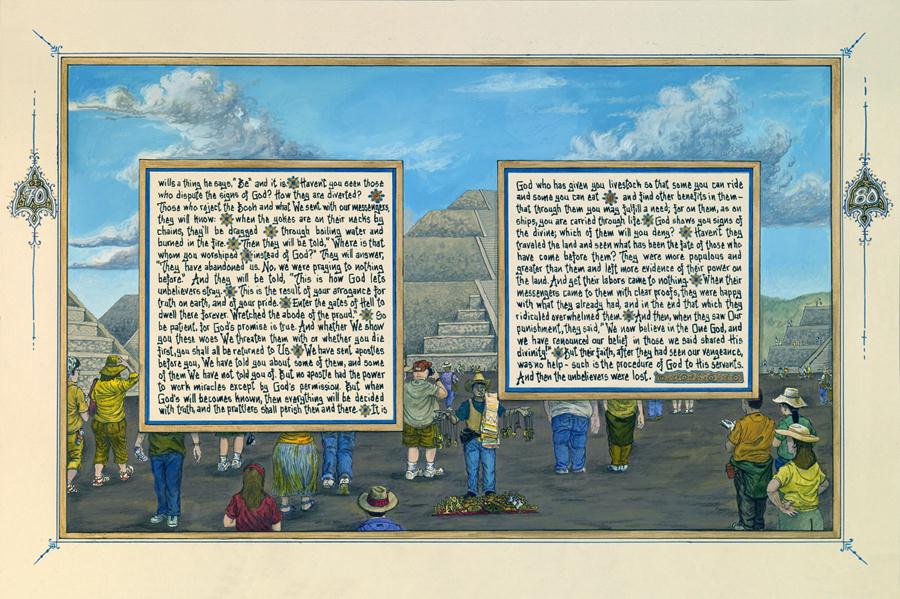 40
wills a thing he says, "Be" and it is. Haven't you seen those
who dispute the signs of God? How they are diverted?
Those who reject the Book and what We sent with our messengers,
they will know: when the yokes are on their necks by
chains, they'll be dragged through boiling water and
burned in the fire. Then they will be told, "Where is that
whom you worshiped instead of God?" They will answer,
"They have abandoned us. No, we were praying to nothing
before." And they will be told, "This is how God lets
unbelievers stray. This is the result of your arrogance for
truth on earth, and of your pride. Enter the gates of Hell to
dwell there forever. Wretched the abode of the proud." So
be patient, for God's promise is true. And whether We show
you these woes We threaten them with or whether you die
first, you shall all be returned to Us. We have sent apostles
before you, We have told you about some of them, and some
of them We have not told you of. But no apostle had the power
to work miracles except by God's permission. But when
God's will becomes known, then everything will be decided
with truth, and the prattlers shall perish then and there. It is
God who has given you livestock so that some you can ride
and some you can eat and find other benefits in them–
that through them you may fulfill a need; for on them, as on
ships, you are carried through life. God shows you signs of
the divine; which of them will you deny? Haven't they
traveled the land and seen what has been the fate of those who
have come before them? They were more populous and
greater than them and left more evidence of their power on
the land. And yet their labors came to nothing. When their
messengers came to them with clear proofs, they were happy
with what they already had, and in the end that which they
ridiculed overwhelmed them. And then, when they saw Our
punishment, they said, "We now believe in the One God, and
we have renounced our belief in those we said shared His
divinity." But their faith, after they had seen our vengeance,
was no help – such is the procedure of God to His servants.
And then the unbelievers were lost.